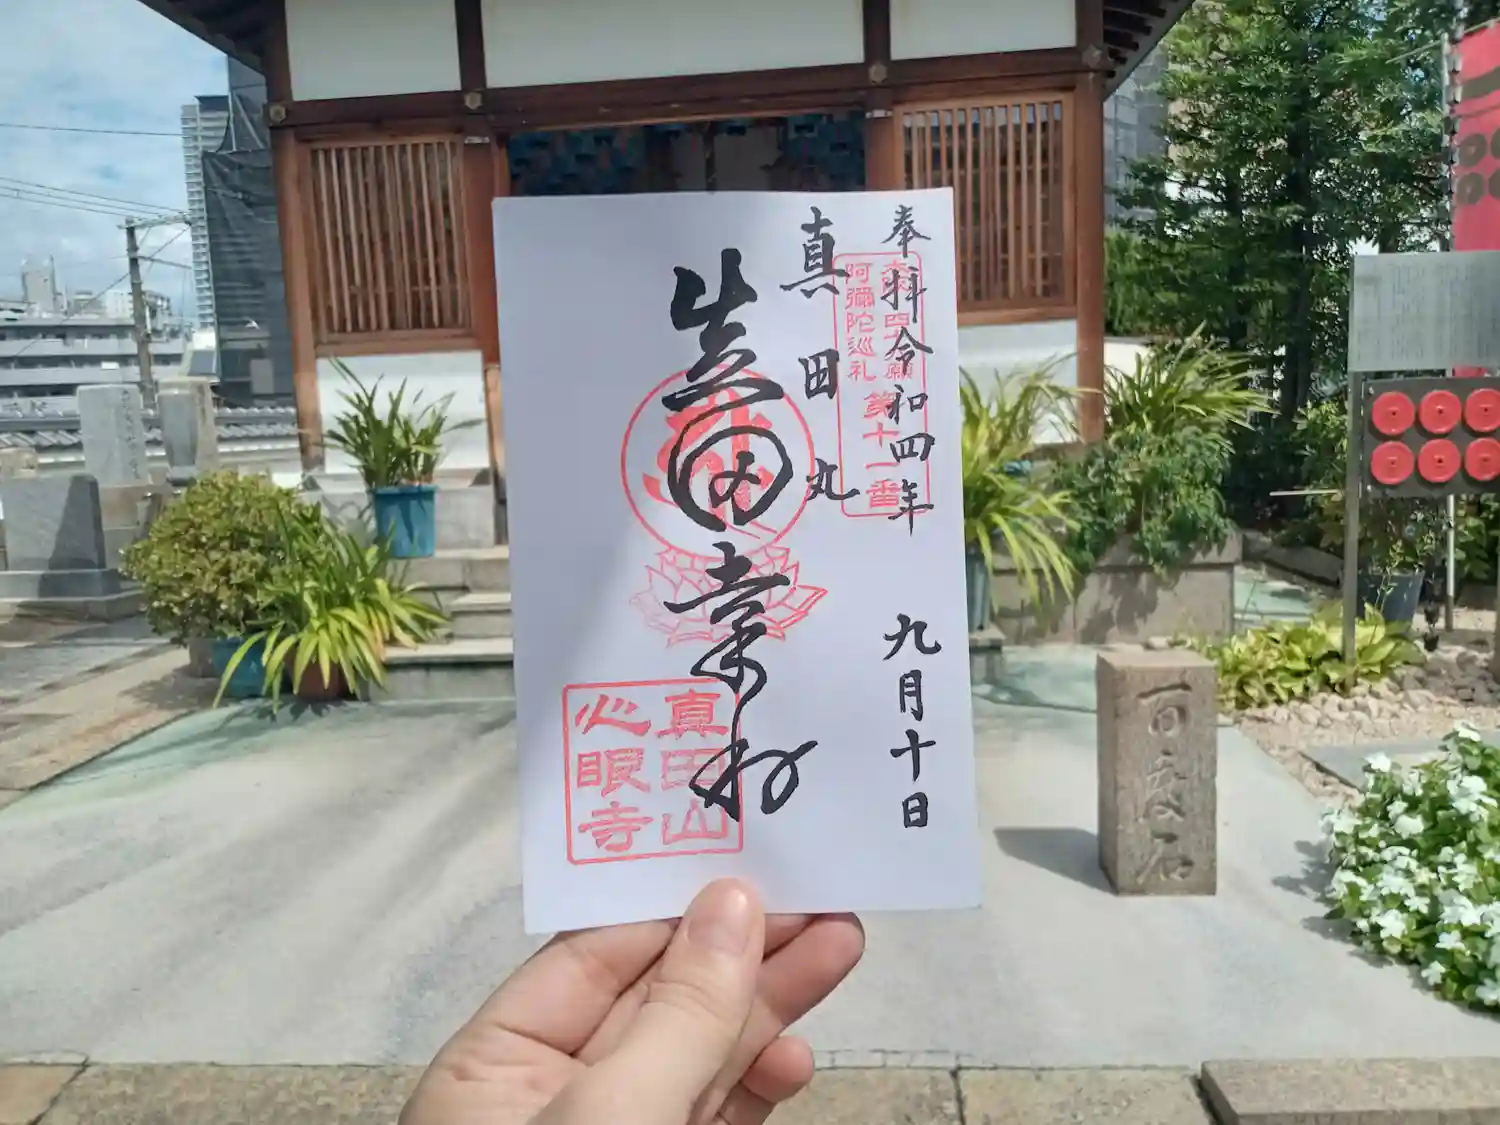 奉拝 令和四年 九月十日
真田丸
真田幸村
大阪四十八願
阿彌陀巡礼
第十一番
真田山
心眼寺
百度石